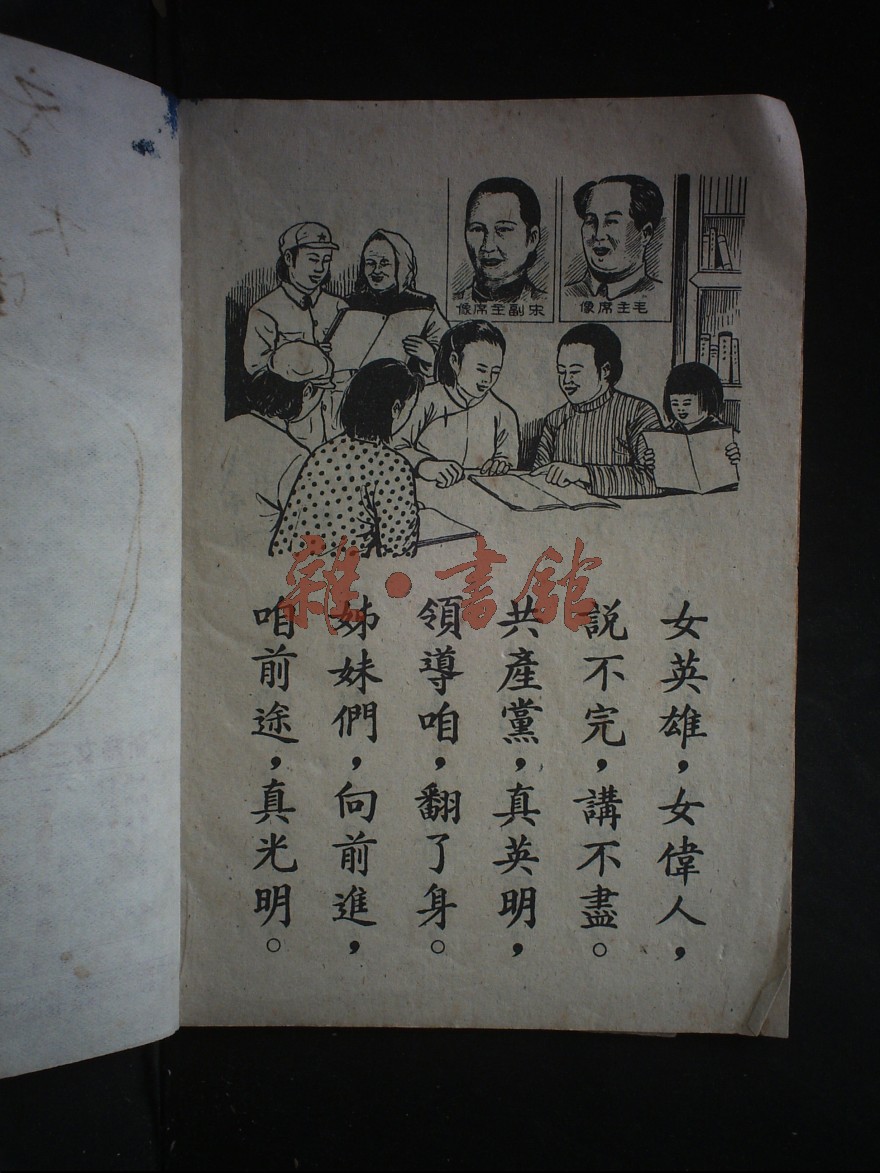 宋副主席像
毛主席像
雜·書館
女英雄，女偉人，
説不完，講不盡。
共產黨，真英明，
領導咱，翻了身。
姊妹們，向前進，
咱前途，真光明。